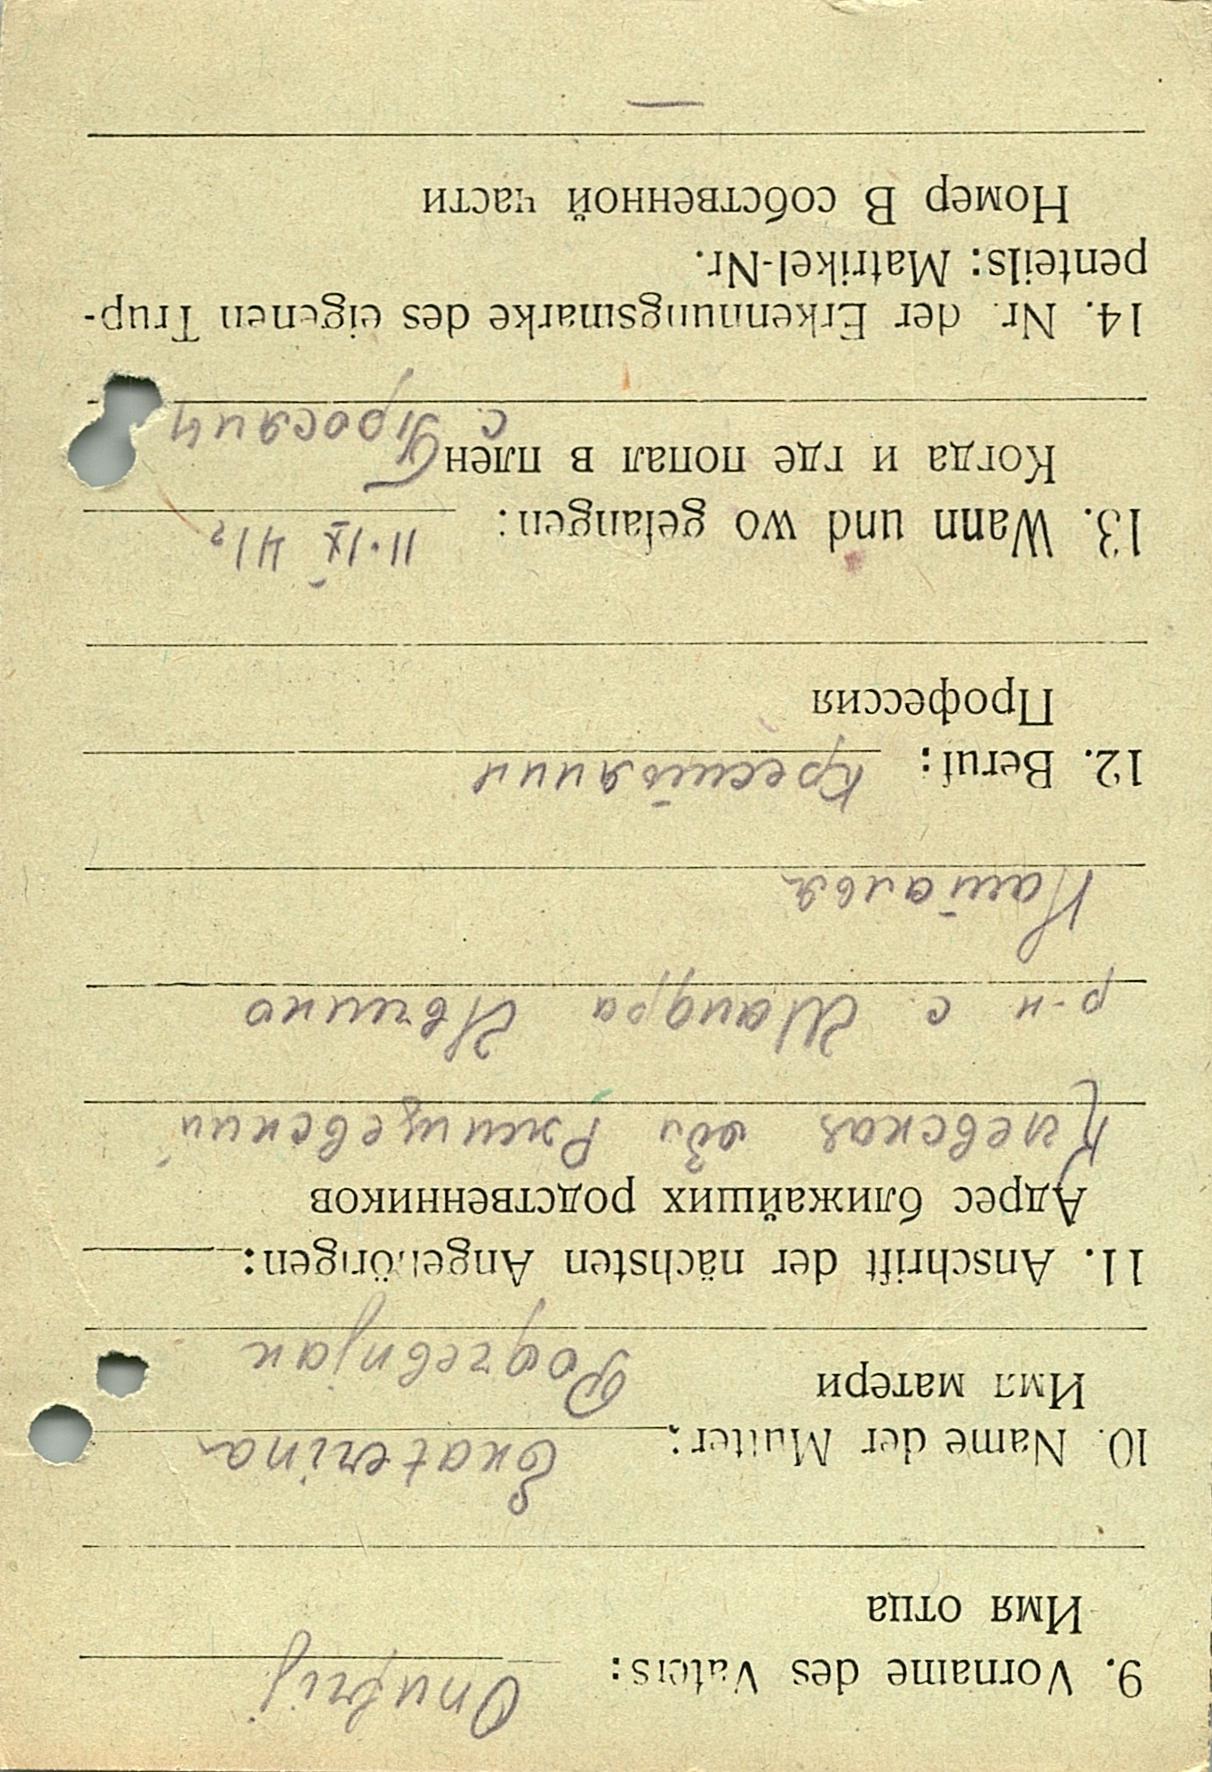 9. Vorname des Vaters: Onufrij
Имя отца
10. Name der Mutter: Ekaterina
Имя матери Podrebnjak
11. Anschrift der nächsten Angehörigen:
Адрес ближайших родственников
Киевская обл Ржищевский
р-н с. Шандра Ивченко
Наталья
12. Beruf: Крестьянин
Профессия
13. Wann und wo gefangen: 11·IX 41г
Когда и где попал в плен
с. Просяны
14. Nr. der Erkennungsmarke des eigenen Trup-
penteils: Matrikel-Nr.
Номер В собственной части
—